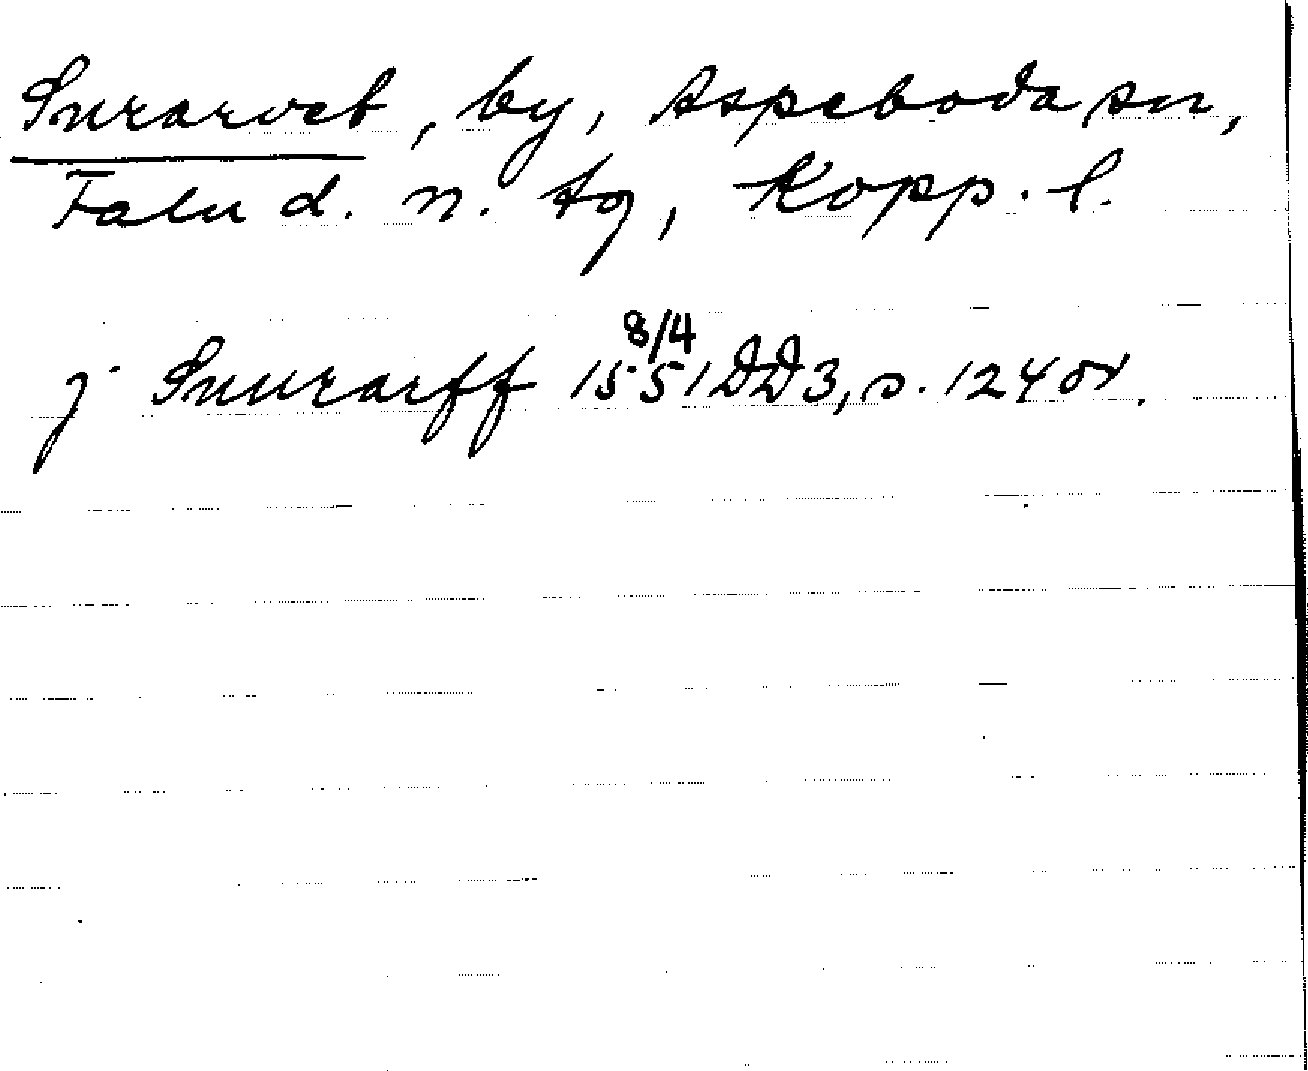 Snrarvet, by, Aspeboda sn,
Falu d. n. tg, Kopp. l.
8/4
j Snurarff 1551 DD3, s. 124 or.